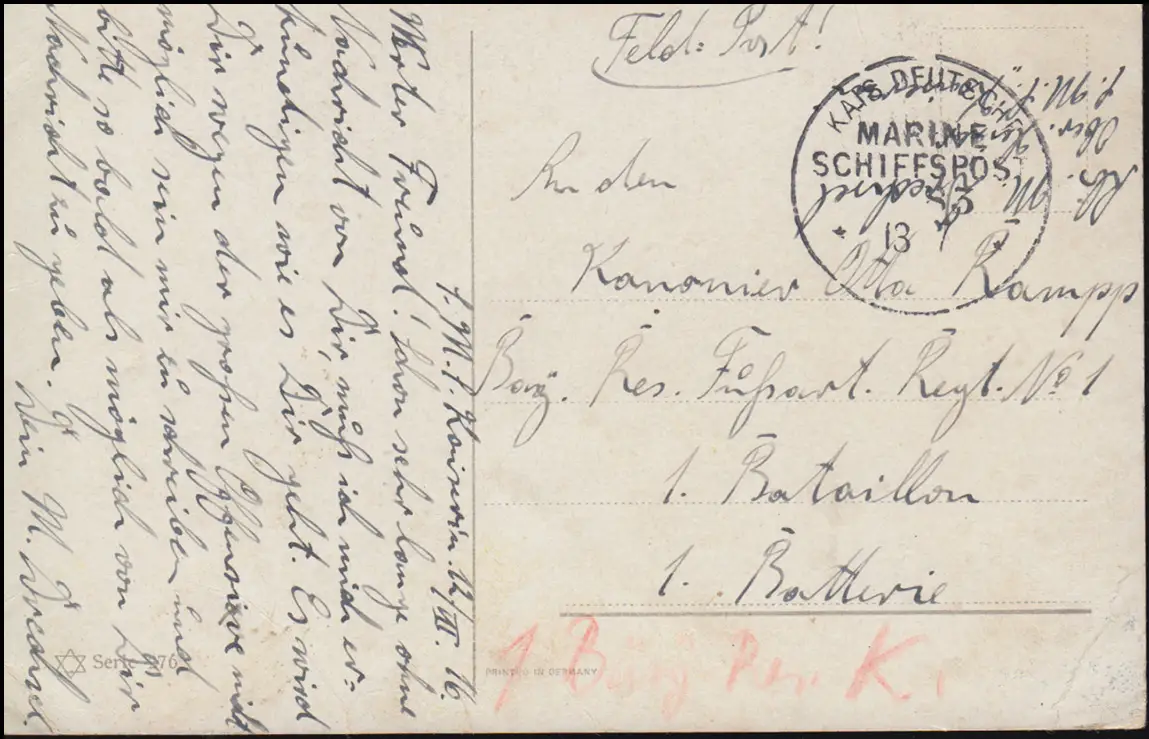 Feld-Post!
KAIS. DEUTSCHE
MARINE
SCHIFFSPOST
13
An den
Kanonier Otto Rampp
Bay. Res. Fußart. Regt. No 1
1. Bataillon
1. Batterie
1 Bay Res. K.
S.M.S. Kaiserin. 12/VII. 16.
Werter Freund! Schon sehr lange ohne
Nachricht von Dir, muß ich mich er-
kundigen wie es Dir geht. Es wird
Dir wegen der großen Offensive nicht
möglich sein mir zu schreiben und
bitte so bald als möglich von Dir
Nachricht zu geben.
Dein M.
Serie 976
PRINTED IN GERMANY